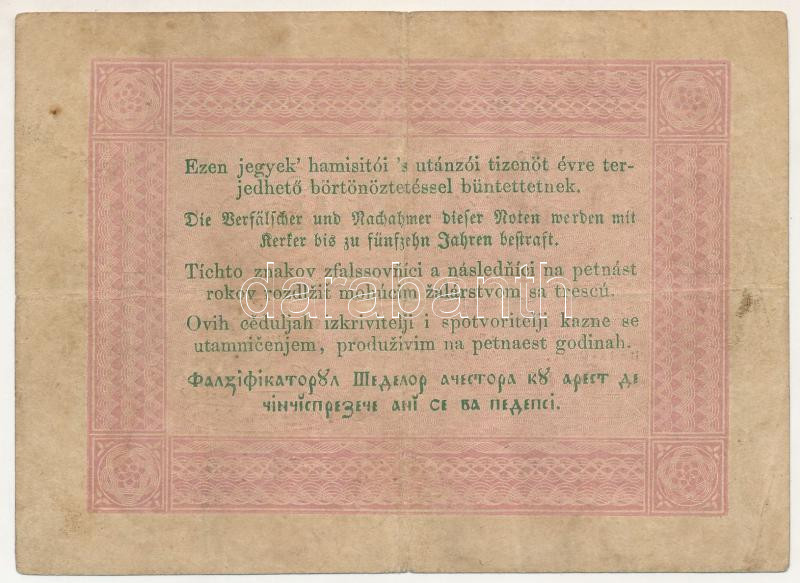 Ezen jegyek' hamisitói 's utánzói tizenöt évre ter-
jedhető börtönöztetéssel büntettetnek.
Die Verfälscher und Nachahmer dieser Noten werden mit
Kerker bis zu fünfzehn Jahren bestraft.
Tíchto znakov zfalssovňíci a následňíci na petnást
rokov rozdlžit mohúcím žalárstvom sa trescú.
Ovih ceduljah izkrivitelji i spotvoritelji kazne se
utamničenjem, produživim na petnaest godinah.
Фалꙁіфікаторꙋл Шеделор ачестора кꙋ арест де
чінчіспреꙁече ані се ва педепсі.
darabanth